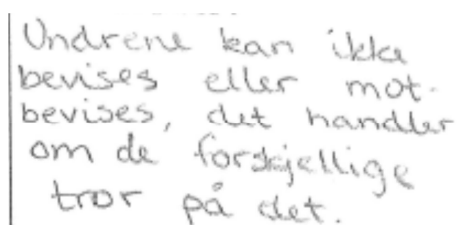 Undrene kan ikke
bevises eller mot-
bevises, det handler
om de forskjellige
tror på det.